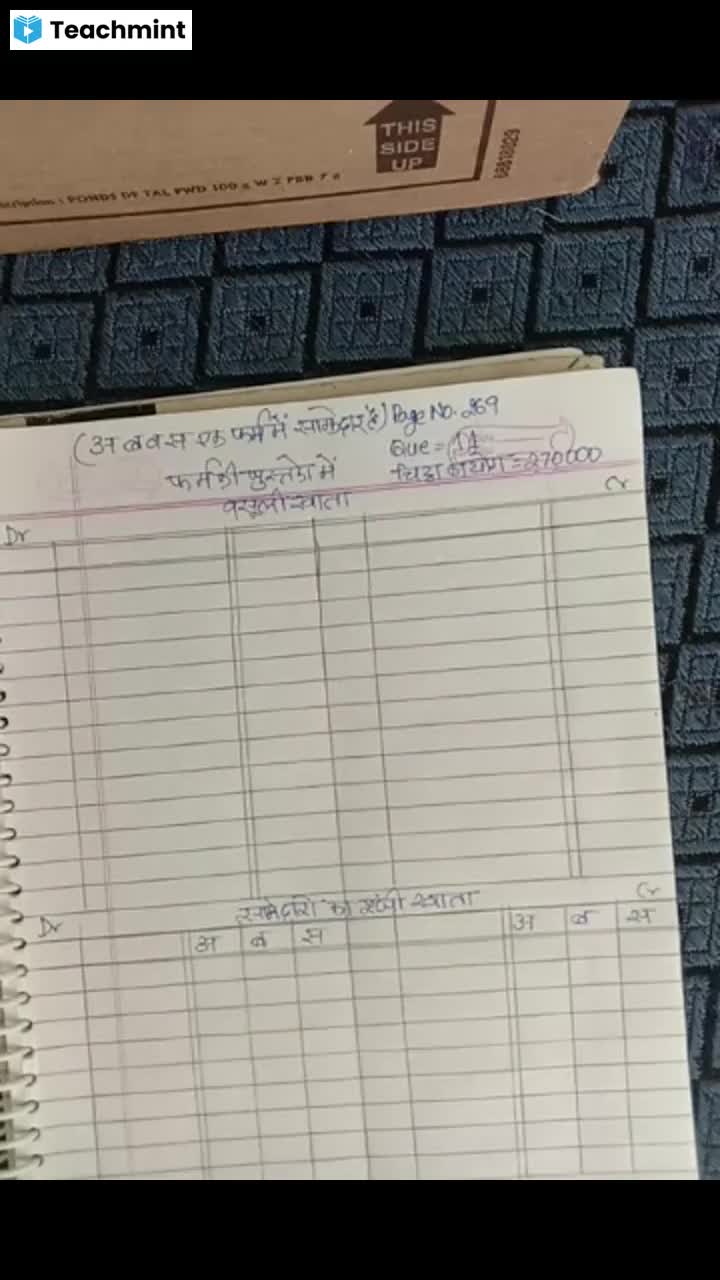 Teachmint
THIS
SIDE
UP
68818029
PONDS DF TAL PWD 100 g W
(अ ब व स एक फर्म में साझेदार है) Page No. 269
Que = 11
फर्म की पुस्तकों में
चिट्ठा का योग = 270000
वसूली खाता
Dr
Cr
साझेदारों का पूंजी खाता
Dr
Cr
अ ब स
अ ब स